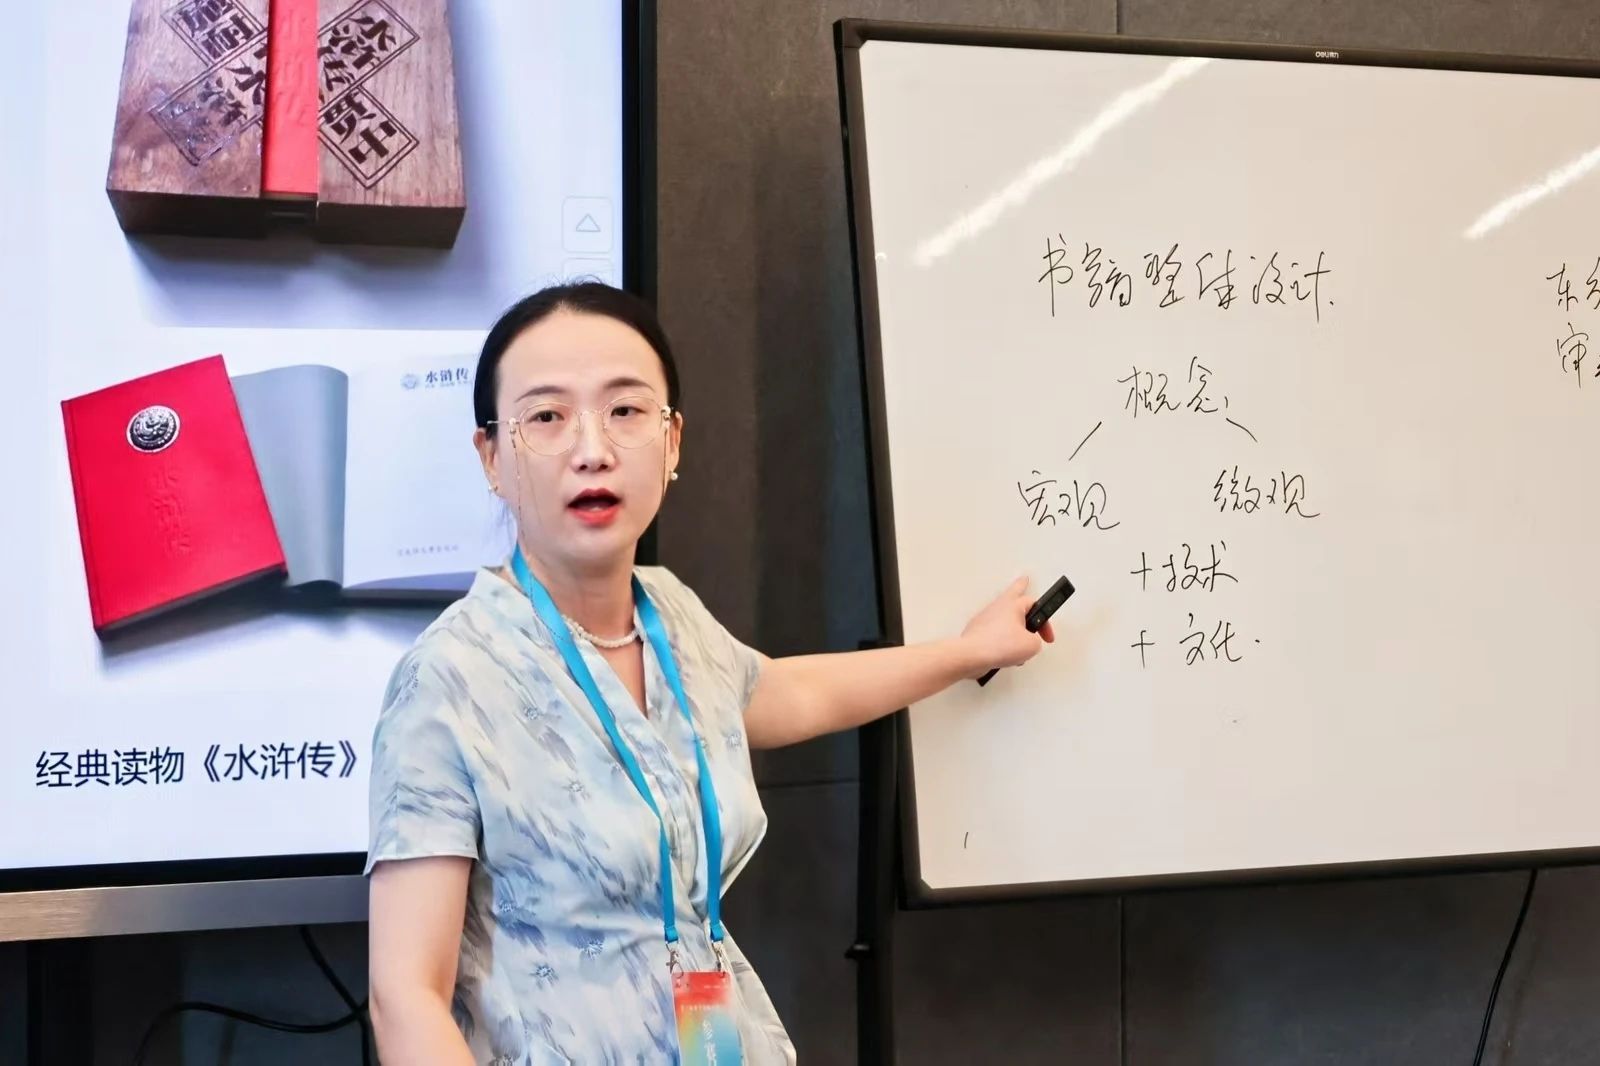 水浒传
水浒传
经典读物《水浒传》
deli得力
书籍整体设计.
概念
宏观 微观
+技术
+文化.
东
审
参赛